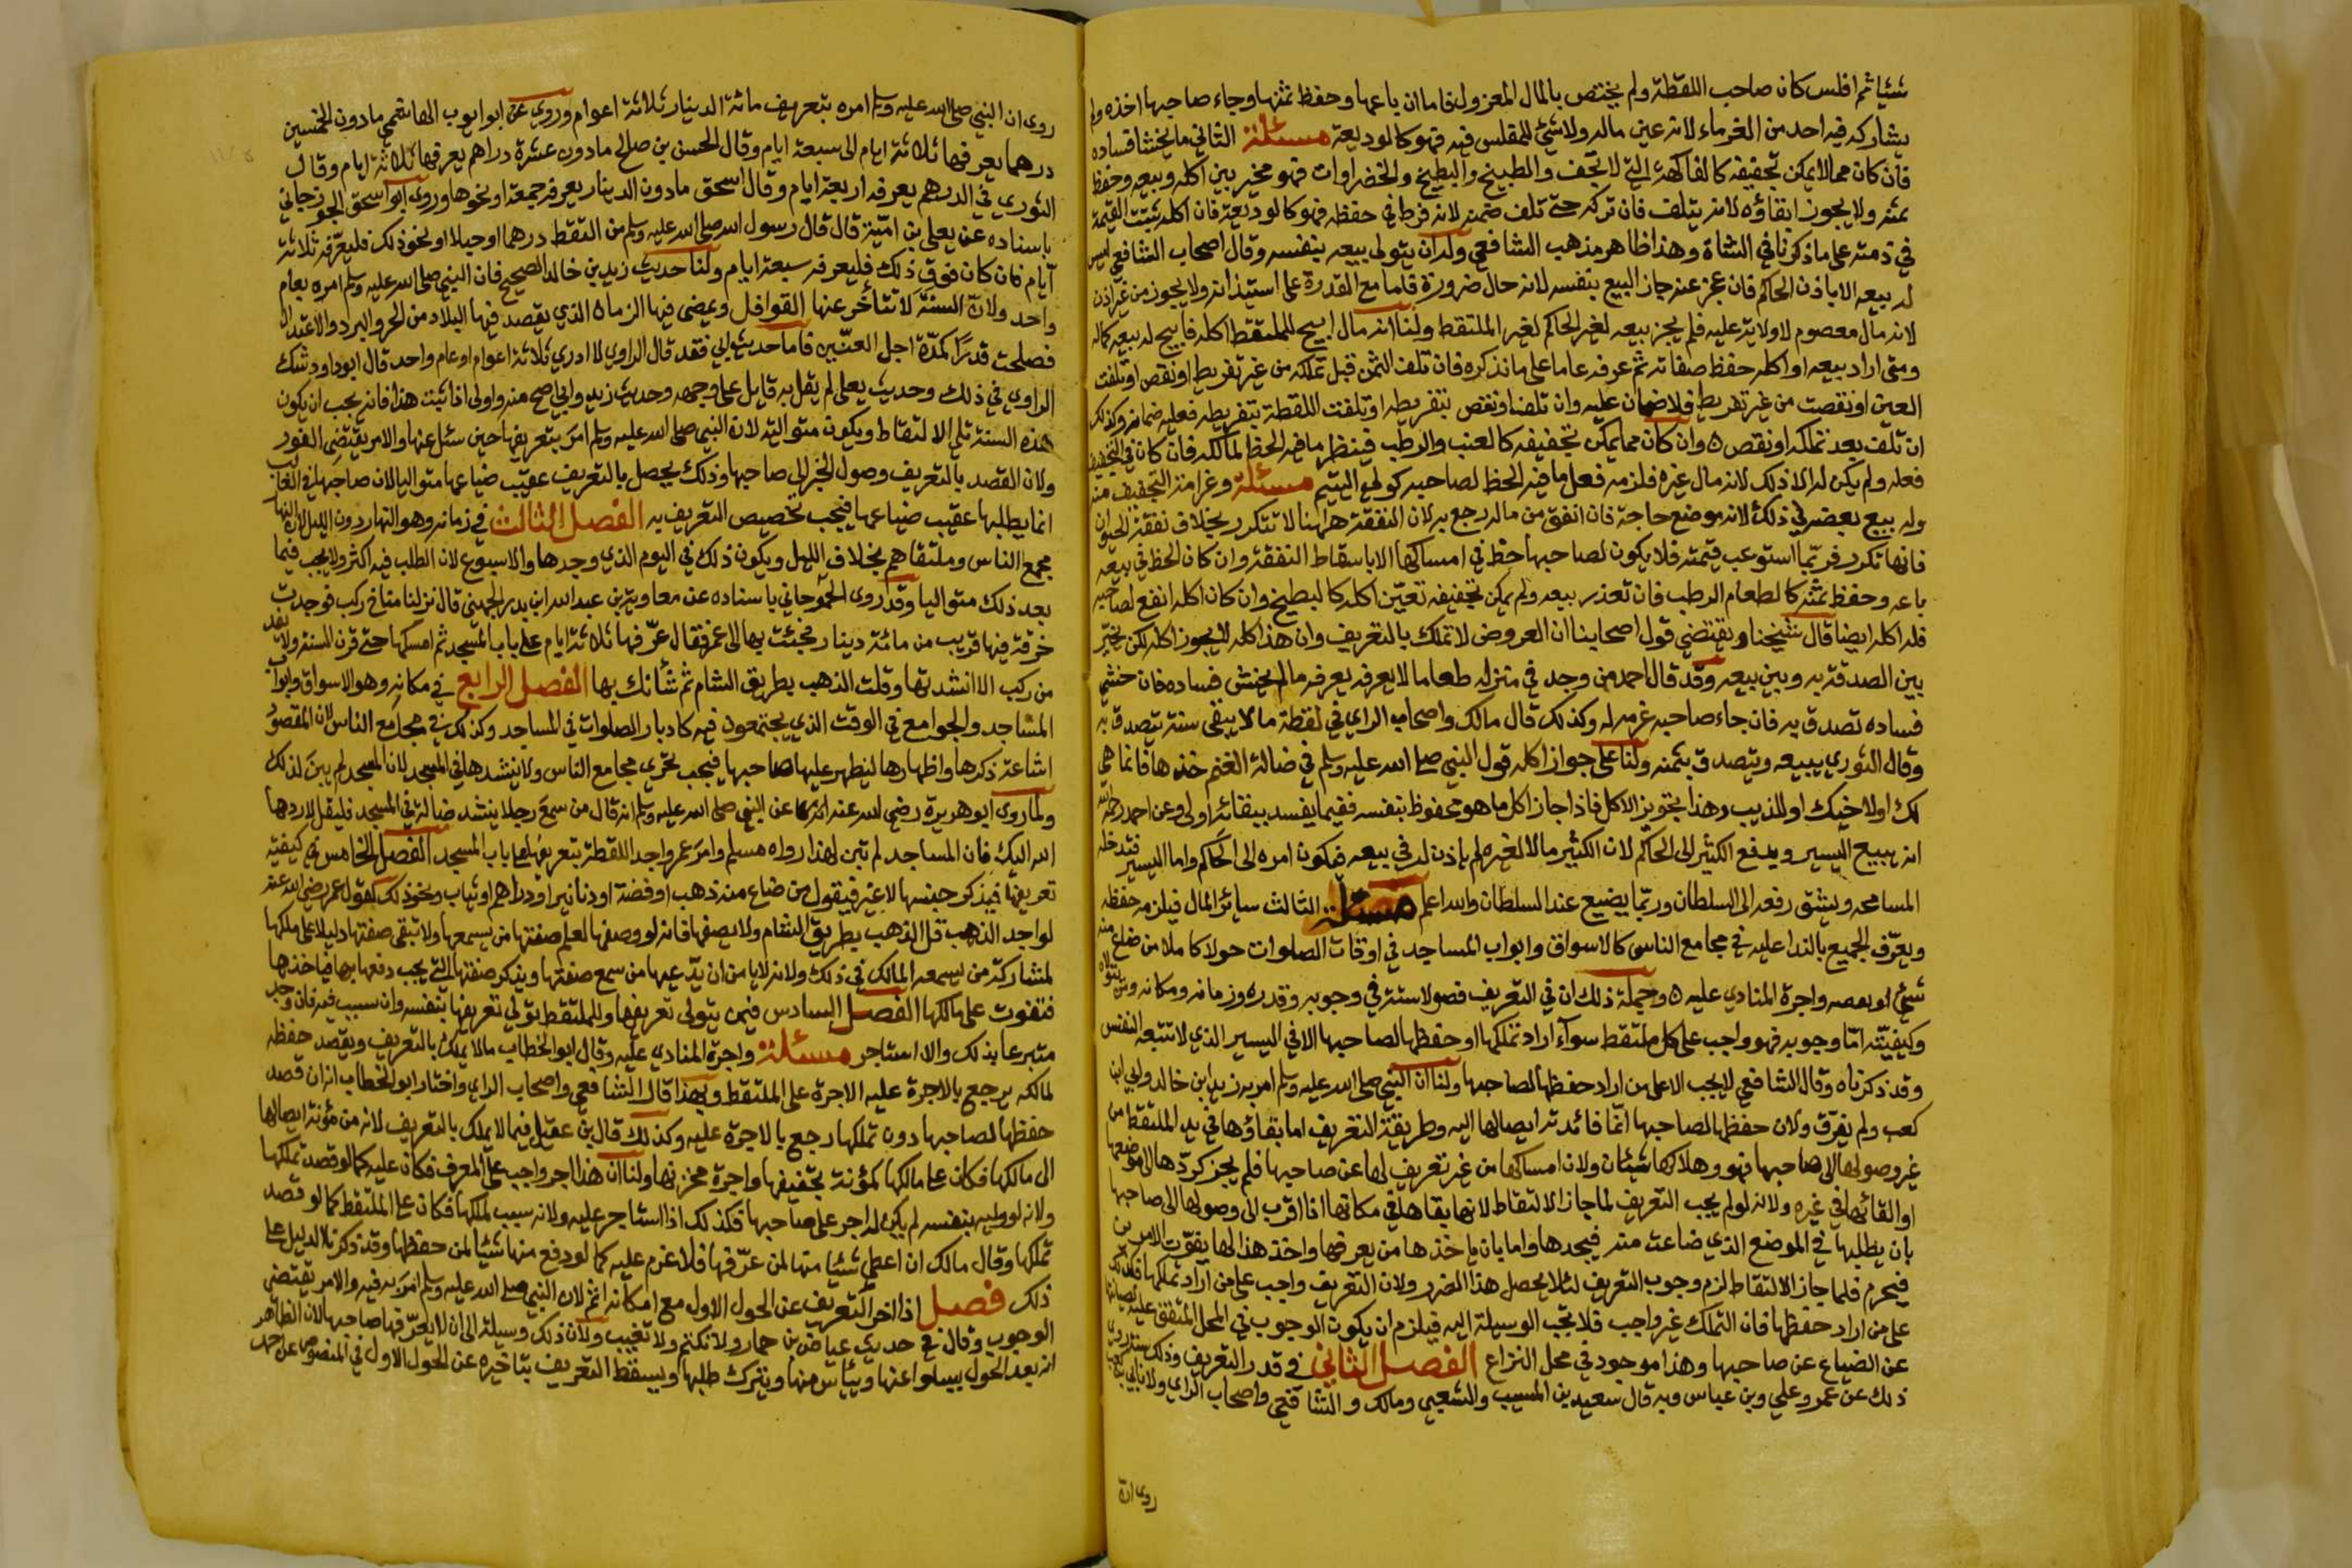 شيئا ثم افلس كان صاحب اللقطة ولم يختص بالمال المعزول فاما ان باعها وحفظ ثمنها وجاء صاحبها اخذه ولم
يشاركه فيه احد من الغرماء لانه عين ماله ولا شيئ للمفلس فيه فهو كالوديعة مسئلة الثاني ما يخشا فساده
فان كان مما لا يمكن تجفيفه كالفاكهة التي لا تجف والطبيخ والبطيخ والخضراوات فهو مخير بين اكله وبيعه وحفظ
ثمنه ولا يجوز ابقاؤه لانه يتلف فان تركه حتى تلف ضمنه لانه فرط في حفظه فهو كالوديعة فان اكله ثبتت القيمة
في ذمته على ما ذكرنا في الشاة وهذا ظاهر مذهب الشافعي وله ان يتولى بيعه بنفسه وقال اصحاب الشافعي ليس
له بيعه الا باذن الحاكم فان عجز عنه جاز البيع بنفسه لانه حال ضرورة فاما مع القدرة على استيذانه ولا يجوز من غير اذن
لانه مال معصوم لا ولاية عليه فلم يجز بيعه لغير الحاكم لغير الملتقط ولنا انه مال ابيح للملتقط اكله فابيح له بيعه كماله
ومتى اراد بيعه او اكله حفظ صفاته ثم عرفه عاما على ما نذكره فان تلف الثمن قبل تملكه من غير تفريط او نقص او تلفت
العين او نقصت من غير تفريط فلا ضمان عليه وان تلفنا ونقص بتفريطه او تلفت اللقطة بتفريطه فعليه ضمانه وكذلك
ان تلف بعد تملكه او نقص ٥ وان كان مما يمكن تجفيفه كالعنب والرطب فينظر ما فيه الحظ لمالكه فان كان في التجفيف
فعله ولم يكن له الا ذلك لانه مال غيره فلزمه فعل ما فيه الحظ لصاحبه كولي اليتيم مسئلة وغرامة التجفيف منه
وله بيع بعضه في ذلك لانه موضع حاجة فان انفق من ماله رجع به لان النفقة هاهنا لا تتكرر بخلاف نفقة الحيوان
فانها تكرر فربما استوعب قيمته فلا يكون لصاحبها حظ في امساكها الا باسقاط النفقة وان كان الحظ في بيعه
باعه وحفظ ثمنه كالطعام الرطب فان تعذر بيعه ولم يمكن تجفيفه تعين اكله كالبطيخ وان كان اكله انفع لصاحبه
فله اكله ايضا قال شيخنا ويقتضي قول اصحابنا ان العروض لا تملك بالتعريف وان هذا كله لا يجوز اكله لكن يخير
بين الصدقة به وبين بيعه وقد قال احمد من وجد في منزله طعاما لا يعرفه يعرفه ما لم يخش فساده فان خشي
فساده تصدق به فان جاء صاحبه غرمه له وكذلك قال مالك واصحاب الراي في لقطة ما لا يبقى سنة تتصدق به
وقال الثوري يبيعه ويتصدق بثمنه ولنا على جواز اكله قول النبي صلى الله عليه وسلم في ضالة الغنم خذها فانما هي
لك او لاخيك او للذيب وهذا تجويز الاكل فاذا جاز اكل ما هو محفوظ بنفسه ففيما يفسد ببقائه اولى وعن احمد رحمه الله
انه يبيع اليسير ويدفع الكثير الى الحاكم لان الكثير مالا لغيره لم ياذن له في بيعه فيكون امره الى الحاكم واما اليسير فتدخله
المسامحه ويشق رفعه الى السلطان وربما يضيع عند السلطان والله اعلم مسئلة الثالث سائر المال فيلزمه حفظه
ويعرف الجميع بالندا عليه في مجامع الناس كالاسواق وابواب المساجد في اوقات الصلوات حولا كاملا من ضاع منه
شيئ او بعضه واجرة المنادي عليه ٥ وجملة ذلك ان في التعريف فصولا ستة في وجوبه وقدره وزمانه ومكانه ومن يتولاه
وكيفيته اما وجوبه فهو واجب على كل ملتقط سوآء اراد تملكها او حفظها لصاحبها الا في اليسير الذي لا تتبعه النفس
وقد ذكرناه وقال الشافعي لا يجب الا على من اراد حفظها لصاحبها ولنا ان النبي صلى الله عليه وسلم امر به زيد ابن خالد وابي ابن
كعب ولم يفرق ولان حفظها لصاحبها انما فائدته ايصالها اليه وطريقة التعريف اما بقاؤها في يد الملتقط من
غير وصولها الى صاحبها فهو وهلاكها شيئان ولان امساكها من غير تعريف لها عن صاحبها فلم يجز كردها الى موضعها
او القائها في غيره ولانه لو لم يجب التعريف لما جاز الالتقاط لانها بقاها في مكانها اذا اقرب الى وصولها الى صاحبها
بان يطلبها في الموضع الذي ضاعت منه فيجدها واما بان ياخذها من يعرفها واخذ هذا لها يفوت الامرين
فيحرم فلما جاز الالتقاط لزم وجوب التعريف لئلا يحصل هذا الضرر ولان التعريف واجب على من اراد تملكها فكذلك
على من اراد حفظها فان التملك غير واجب فلا تجب الوسيلة اليه فيلزم ان يكون الوجوب في المحل المتفق عليه لصيانتها
عن الضياع عن صاحبها وهذا موجود في محل النزاع الفصل الثاني في قدر التعريف وذلك سنة روي
ذلك عن عمر وعلي وبن عباس وبه قال سعيد بن المسيب والشعبي ومالك والشافعي واصحاب الراي
روى ان
روى ان النبي صلى الله عليه وسلم امره بتعريف مائة الدينار ثلاثة اعوام وروي عن ابو ايوب الهاشمي ما دون الخمسين
درهما يعرفها ثلاثة ايام الى سبعة ايام وقال الحسن بن صلح ما دون عشرة دراهم يعرفها ثلاثة ايام وقال
الثوري في الدرهم يعرفه اربعة ايام وقال اسحق ما دون الدينار يعرفه جمعة او نحوها وروى ابو اسحق الجوزجاني
باسناده عن يعلى بن امية قال قال رسول الله صلى الله عليه وسلم من التقط درهما او حبلا او نحو ذلك فليعرفه ثلاثة
آيام فان كان فوق ذلك فليعرفه سبعة ايام ولنا حديث زيد بن خالد الصحيح فان النبي صلى الله عليه وسلم امره بعام
واحد ولان السنة لا تتأخر عنها القوافل ويمضى فيها الزمان الذي يقصد فيها البلاد من الحر والبرد والاعتدال
فصلحت قدرا كمدة اجل العنين فاما حديث ابي فقد قال الراوي لا ادري ثلاثة اعوام او عام واحد قال ابو داود شك
الراوي في ذلك وحديث يعلى لم يقل به قايل على وجهه وحديث زيد وابي اصح منه واولى اذا ثبت هذا فانه يجب ان يكون
هذه السنة تلي الالتقاط ويكون متوالية لان النبي صلى الله عليه وسلم امر بتعريفها حين سئل عنها والامر يقتضى الفور
ولان القصد بالتعريف وصول الخبر الى صاحبها وذلك يحصل بالتعريف عقيب ضياعها متواليا لان صاحبها في الغالب
انما يطلبها عقيب ضياعها فيجب تخصيص التعريف به الفصل الثالث في زمانه وهو النهار دون الليل لان النهار
مجمع الناس وملتقاهم بخلاف الليل ويكون ذلك في اليوم الذي وجدها والاسبوع لان الطلب فيه اكثر ولا يجب فيما
بعد ذلك متواليا وقد روى الجوزجاني باسناده عن معاوية بن عبد الله ابن بدر الجهني قال نزلنا مناخ ركب فوجدت
خرقة فيها قريب من مائة دينار فجئت بها الى عمر فقال عرفها ثلاثة ايام على باب المسجد ثم امسكها حتى قرن السنة ولا يفد
من ركب الا انشدتها وقلت الذهب بطريق الشام ثم شأنك بها الفصل الرابع في مكانه وهو الاسواق وابواب
المساجد والجوامع في الوقت الذي يجتمعون فيه كادبار الصلوات في المساجد وكذلك في مجامع الناس لان المقصود
اشاعة ذكرها واظهارها ليظهر عليها صاحبها فيجب تحري مجامع الناس ولا ينشدها في المسجد لان المسجد لم يبن لذلك
ولما روى ابو هريرة رضي الله عنه عن النبي صلى الله عليه وسلم انه قال من سمع رجلا ينشد ضالة في المسجد فليقل لا ردها
الله اليك فان المساجد لم تبن لهذا رواه مسلم وامر عمر واجد اللقطة بتعريفها على باب المسجد الفصل الخامس في كيفية
تعريفها فيذكر جنسها لا غير فيقول من ضاع منه ذهب او فضة او دنانير او دراهم او ثياب ونحو ذلك كقول عمر رضي الله عنه
لواجد الذهب قل الذهب بطريق الشام ولا يصفها فانه لو وصفها لعلم صفتها من يسمعها ولا تبقى صفتها دليلا على ملكها
لمشاركة من يسمعه المالك في ذلك ولانه لا يامن ان يدعيها من سمع صفتها ويذكر صفتها التي يجب دفعها بها فياخذها
فتفوت على مالكها الفصل السادس فيمن يتولى تعريفها وللملتقط تولي تعريفها بنفسه وان يستنيب فيه فان وجد
متبرعا بذلك والا استاجر مسئلة واجرة المنادي عليه وقال ابو الخطاب ما لا يملك بالتعريف ويقصد حفظه
لمالكه يرجع بالاجرة عليه الاجرة على الملتقط وبهذا قال الشافعي واصحاب الراي واختار ابو الخطاب انه ان قصد
حفظها لصاحبها دون تملكها رجع بالاجرة عليه وكذلك قال بن عقيل فيما لا يملك بالتعريف لانه من مؤنة ايصالها
الى مالكها فكان على مالكها كمؤنة تجفيفها واجرة مخزنها ولنا ان هذا اجر واجب على المعرف فكان عليه كما لو قصد تملكها
ولانه لو وليه بنفسه لم يكن له اجر على صاحبها فكذلك اذا استاجر عليه ولانه سبب لملكها فكان على الملتقط كما لو قصد
تملكها وقال مالك ان اعطى شيئا منها لمن عرفها فلا غرم عليه كما لو دفع منها شيئا لمن حفظها وقد ذكرنا الدليل على
ذلك فصل اذا اخر التعريف عن الحول الاول مع امكانه اثم لان النبي صلى الله عليه وسلم امر به فيه والامر يقتضى
الوجوب وقال في حديث عياض بن حمار ولا تكتم ولا تغيب ولان ذلك وسيلة الى ان لا يعرفها صاحبها لان الظاهر
انه بعد الحول يسلو عنها وييأس منها ويترك طلبها ويسقط التعريف بتاخيره عن الحول الاول في المنصوص عن احمد